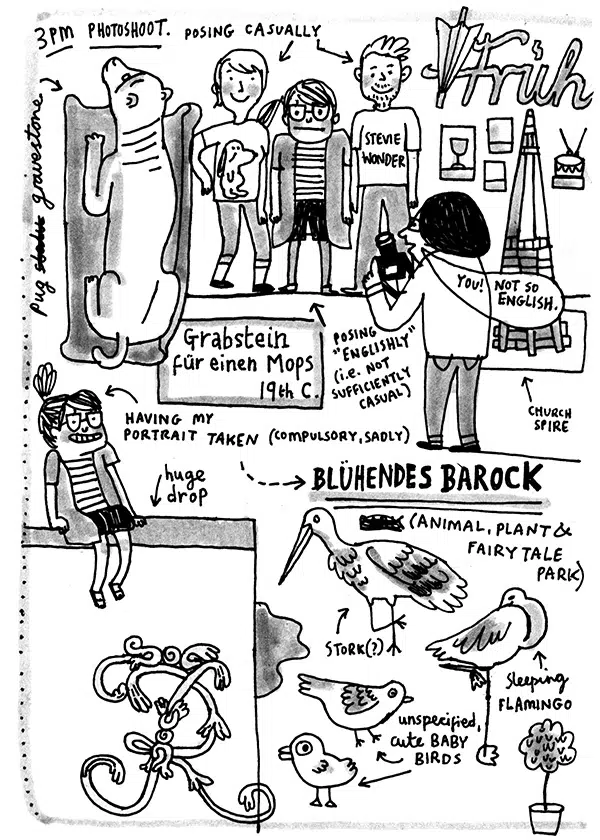 3PM PHOTOSHOOT.
POSING CASUALLY
Früh
pug statue gravestone
STEVIE
WONDER
YOU! NOT SO
ENGLISH.
Grabstein
für einen Mops
19th C.
POSING
"ENGLISHLY"
(i.e. NOT
SUFFICIENTLY
CASUAL)
CHURCH
SPIRE
HAVING MY
PORTRAIT TAKEN (COMPULSORY, SADLY)
huge
drop
BLÜHENDES BAROCK
(ANIMAL, PLANT &
FAIRY TALE
PARK)
STORK(?)
sleeping
FLAMINGO
unspecified,
cute BABY
BIRDS